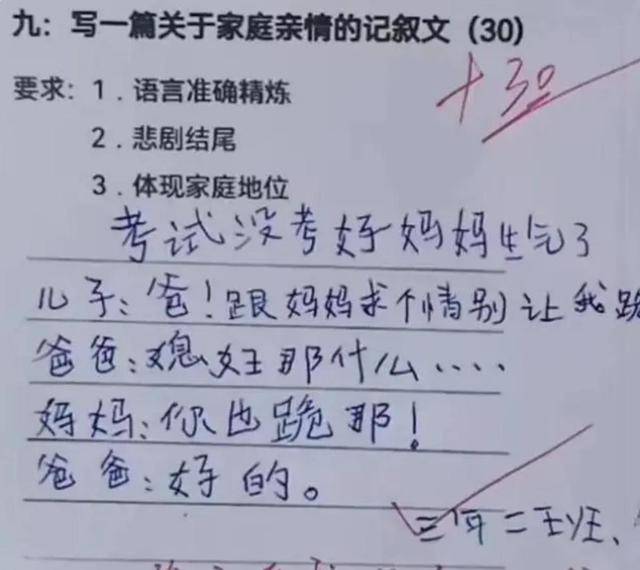 九：写一篇关于家庭亲情的记叙文（30）
+30
要求：1．语言准确精炼
2．悲剧结尾
3．体现家庭地位
考试没考好妈妈生气了
儿子：爸！跟妈妈求个情别让我跪
爸爸：媳妇那什么....
妈妈：你也跪那！
爸爸：好的。
三年二班、